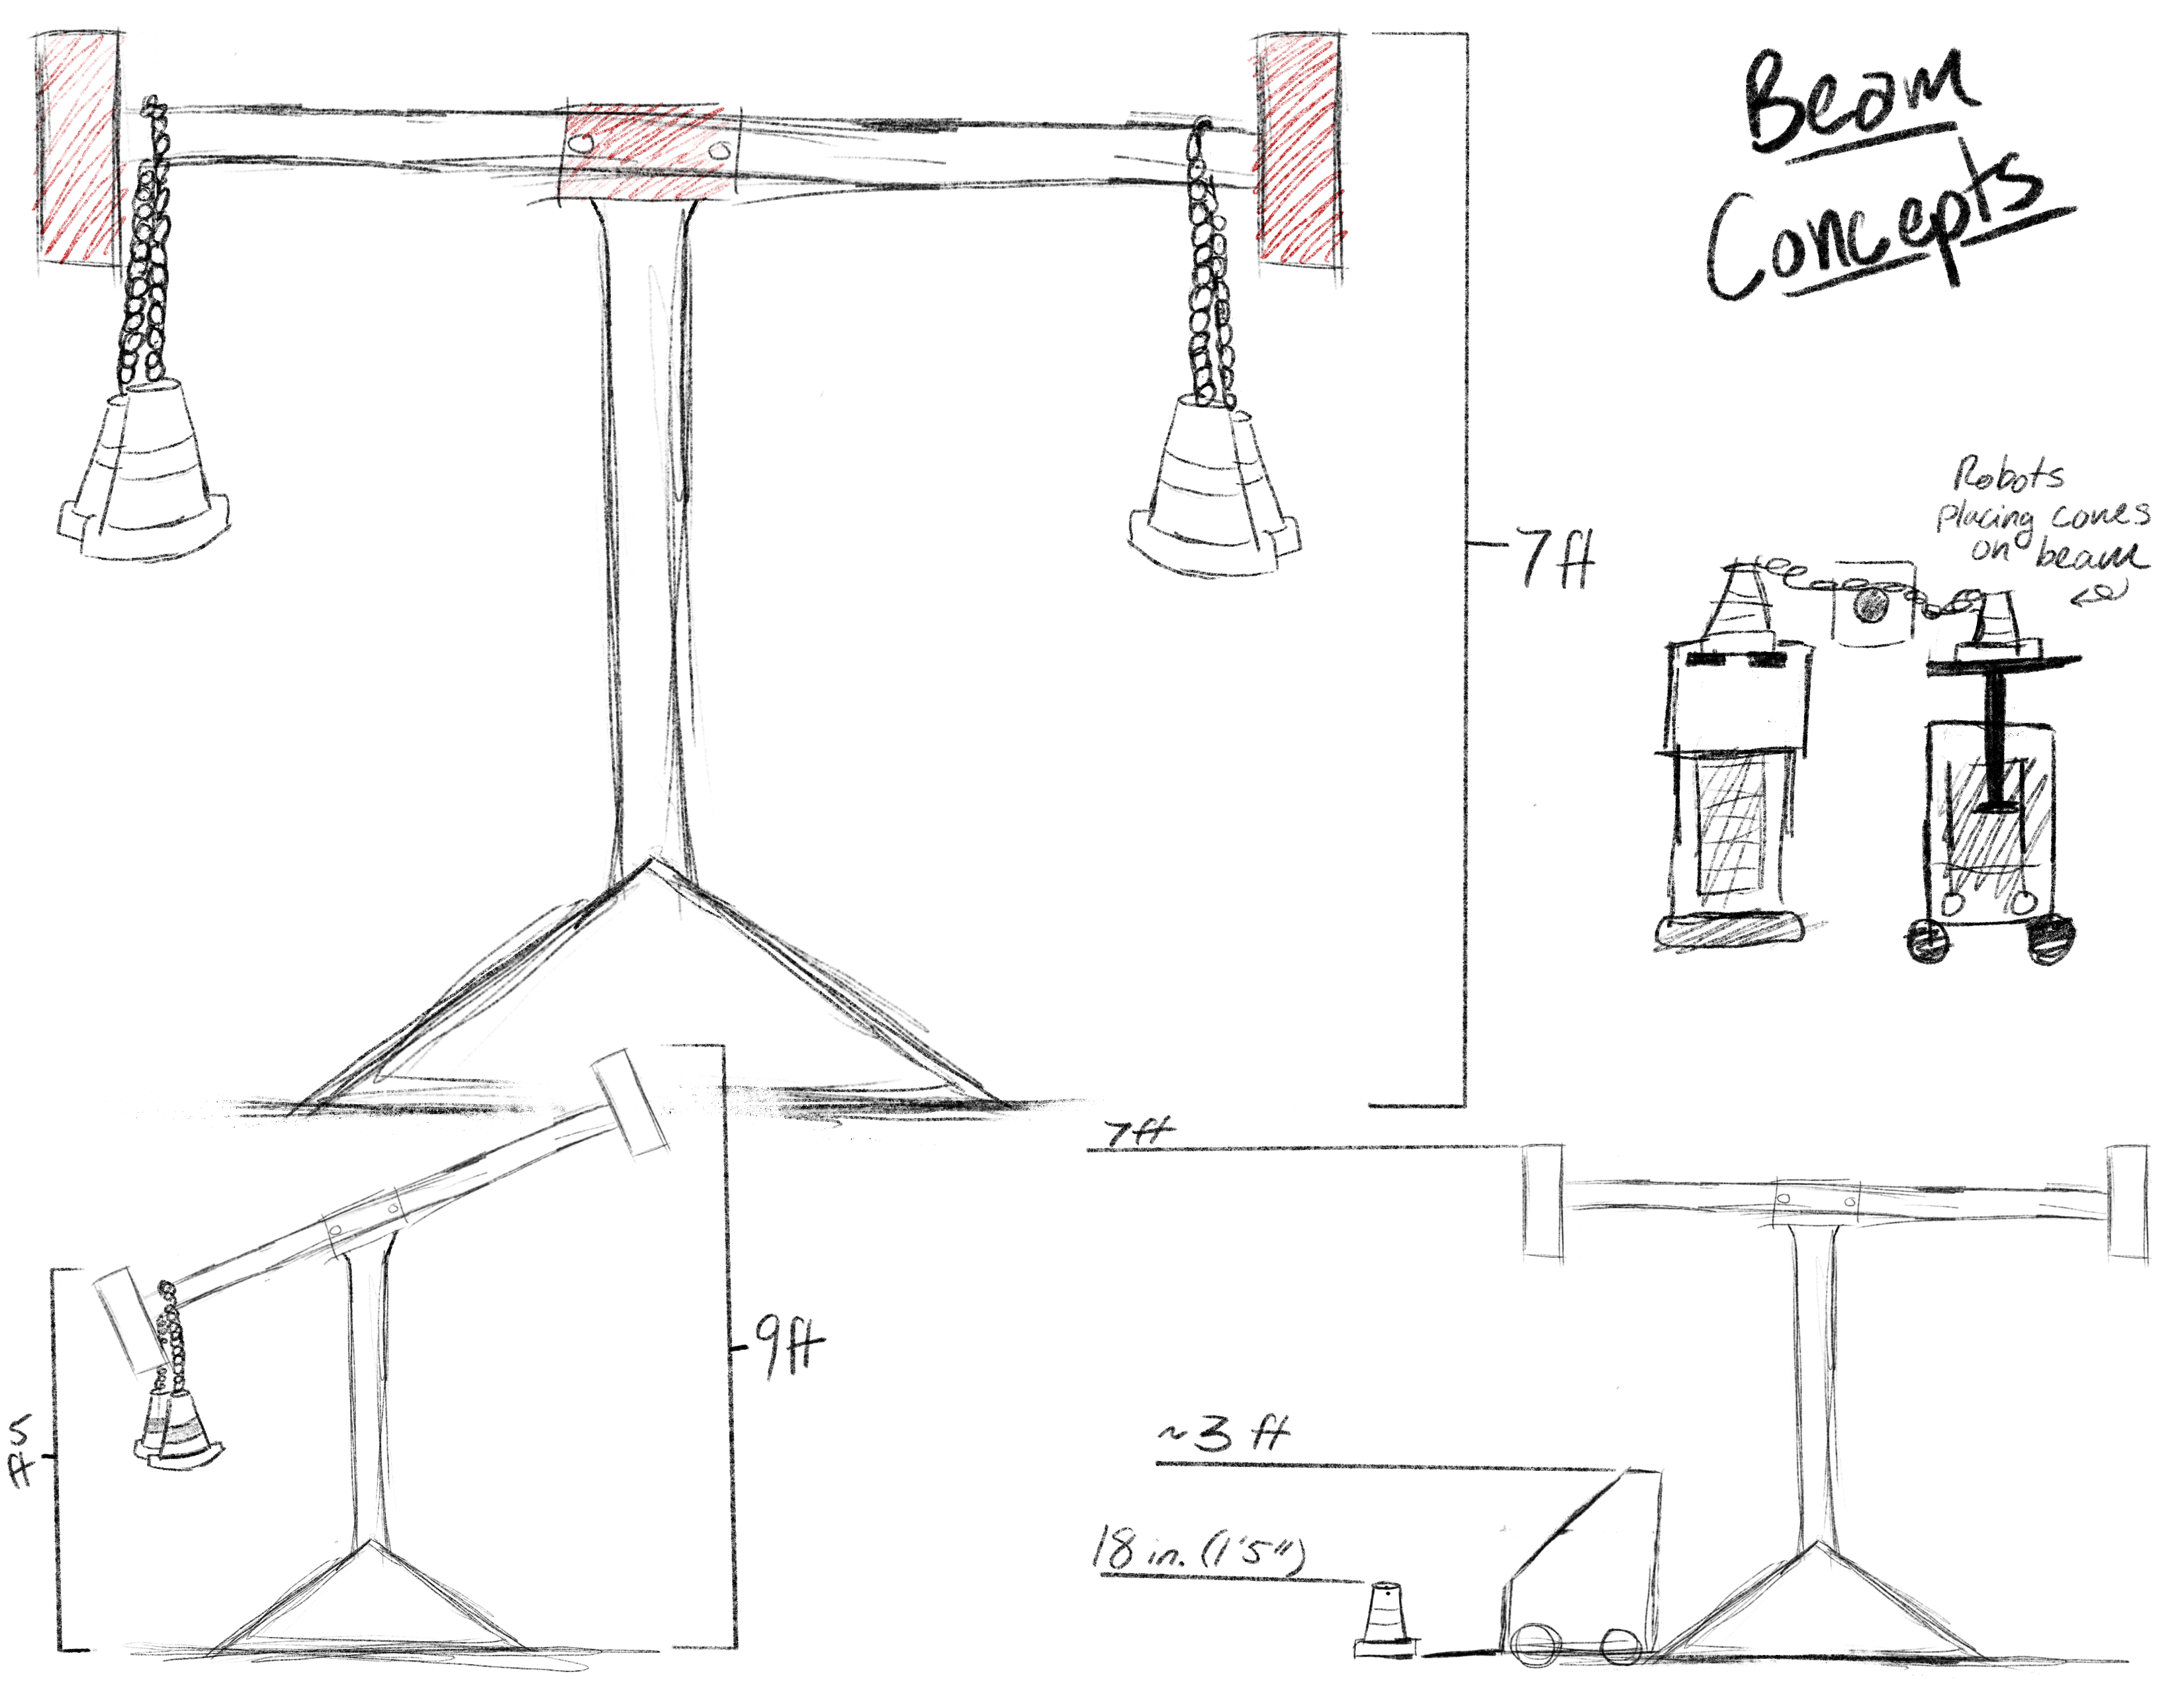 Beam
Concepts
7ft
Robots
placing cones
on beam
9ft
5
ft
7ft
~3 ft
18 in. (1'5")